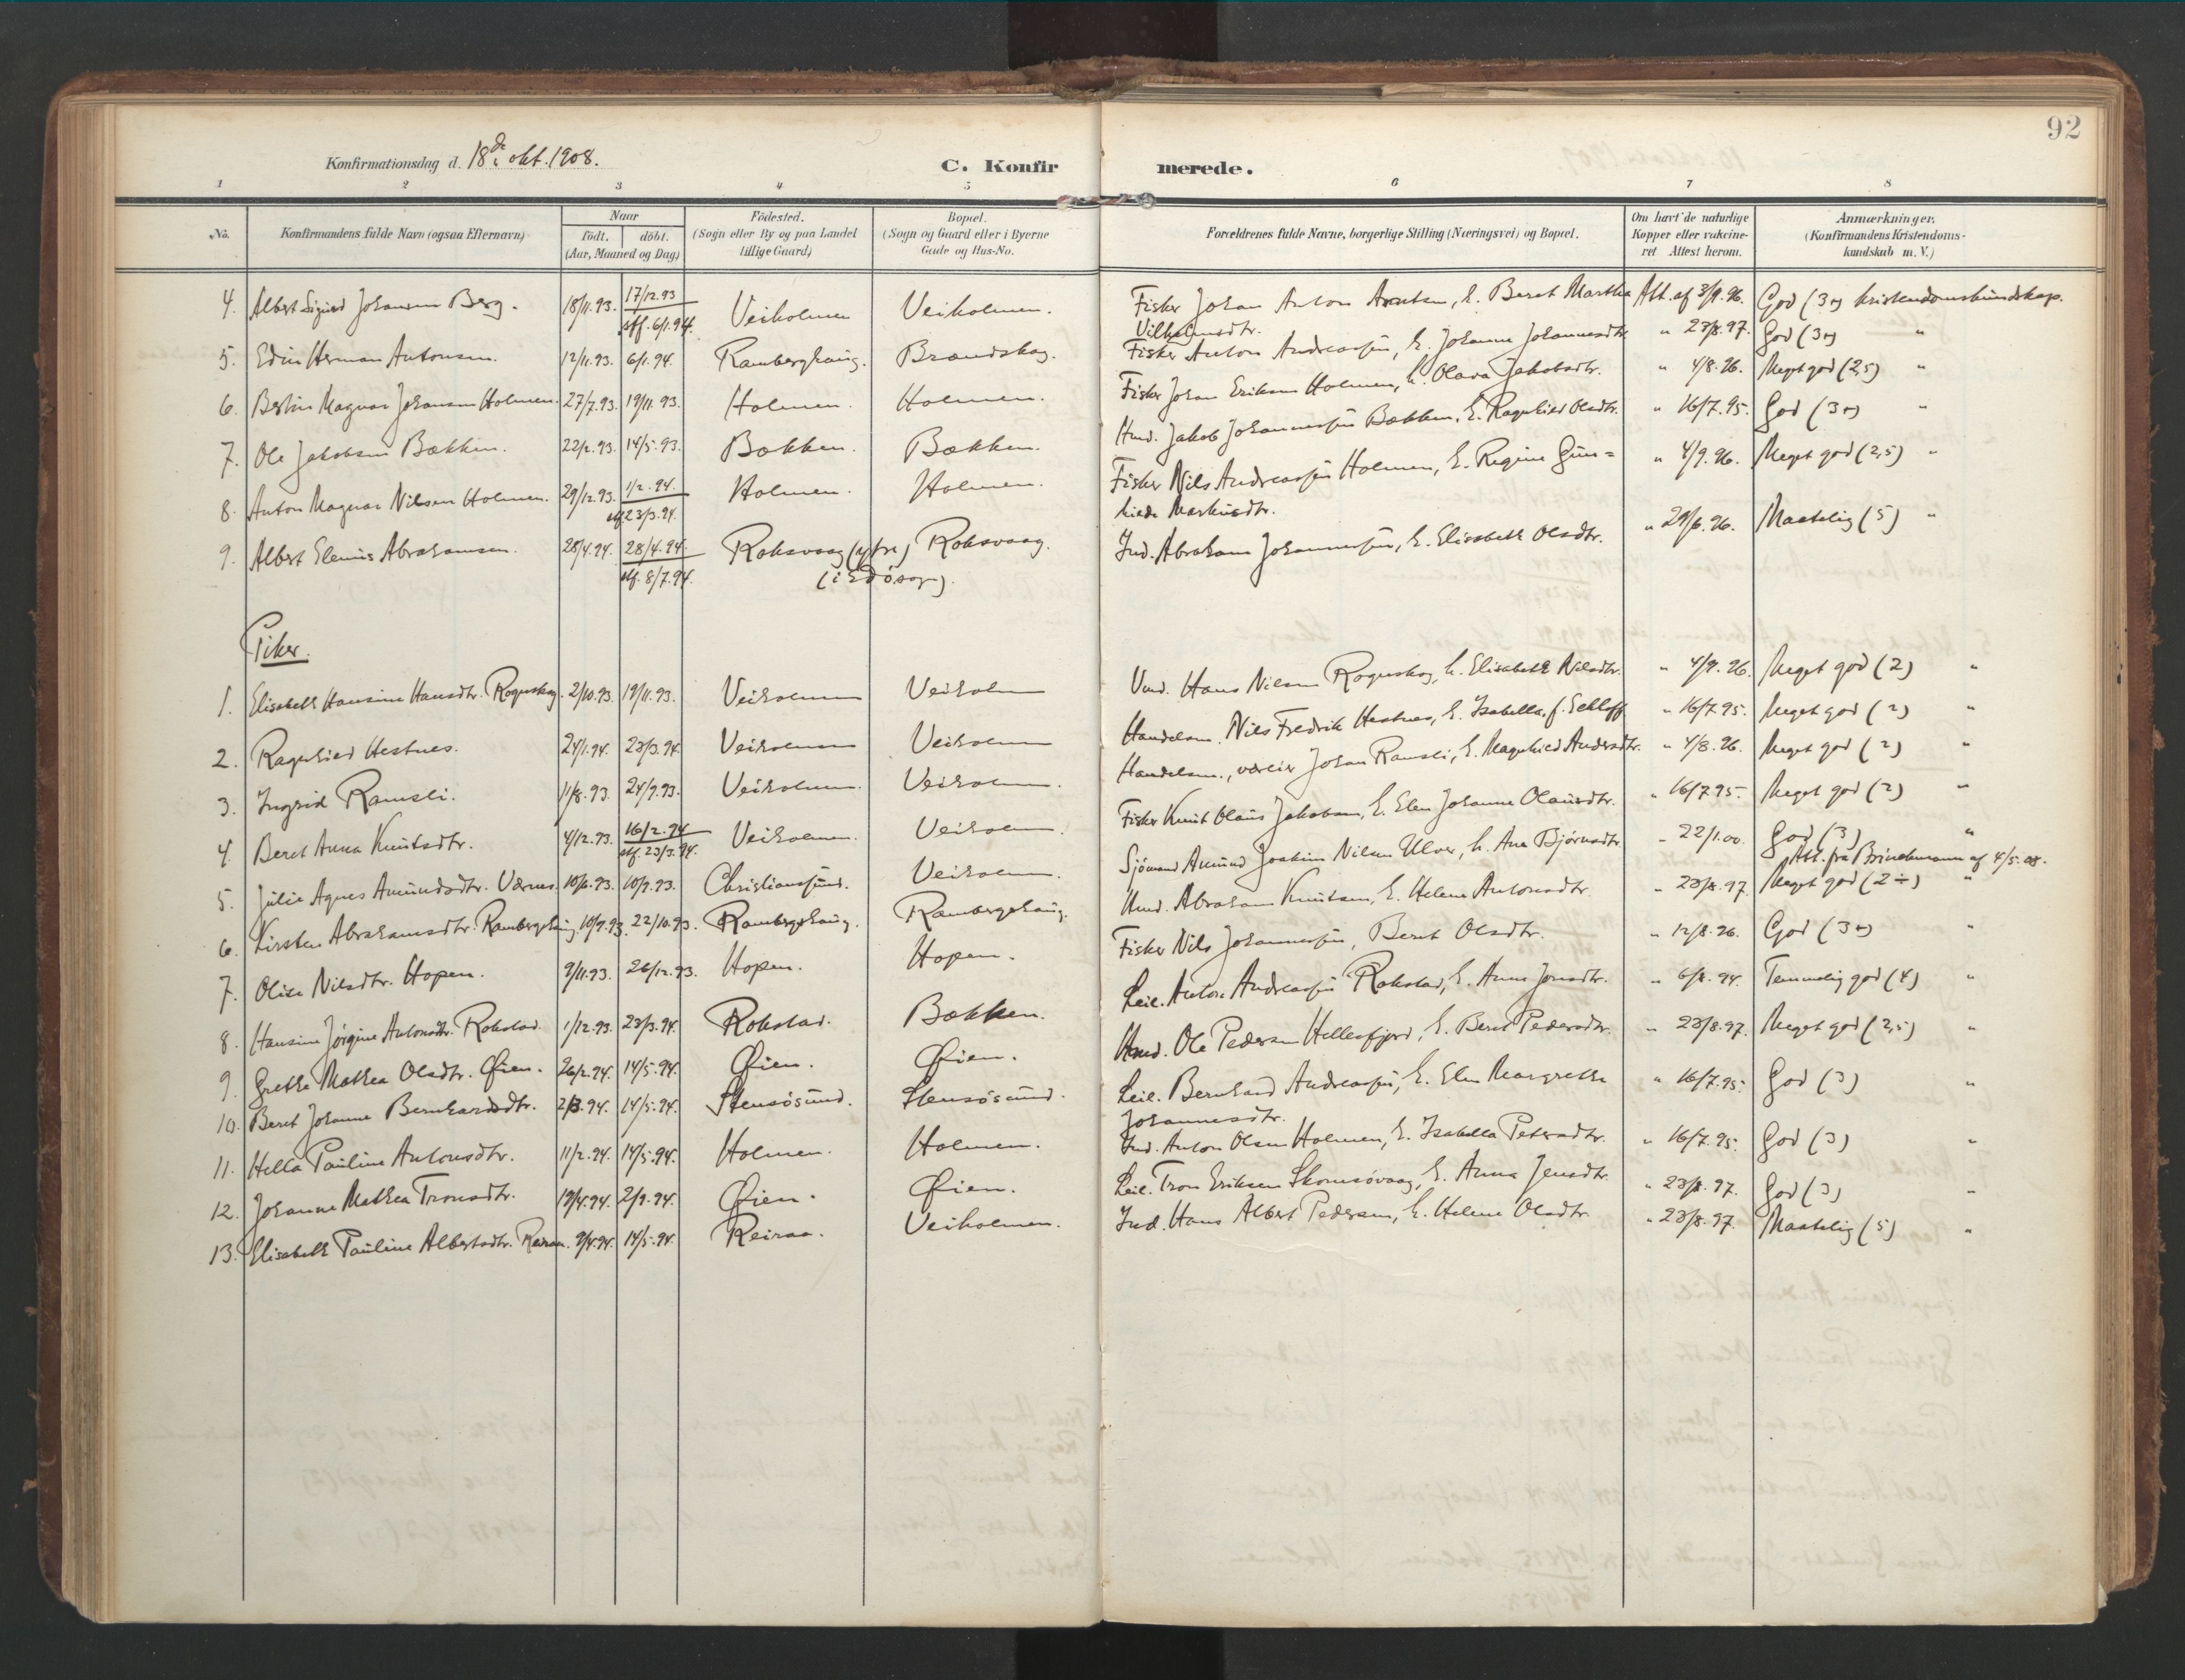 92
Konfirmationsdag d. 18de okt. 1908.
C. Konfirmerede.
1 2 3 4 5 6 7 8
No. Konfirmandens fulde Navn (ogsaa Efternavn) Naar födt. döbt. (Aar, Maaned og Dag) Födested. (Sogn eller By og paa Landet tillige Gaard) Bopæl. (Sogn og Gaard eller i Byerne Gade og Hus-No. Forældrenes fulde Navne, borgerlige Stilling (Næringsvei) og Bopæl. Om havt de naturlige Kopper eller vakcineret Attest herom. Anmærkninger. (Konfirmandens Kristendomskundskab m. V.)
4. Albert Sigurd Johansen Berg. 18/11.93. 17/12.93 stf. 6/1.94. Veiholmen Veiholmen. Fisker Johan Anton Arntsen, h. Beret Martha Vilhelmsdtr. Att. af 3/9.96. God (3+) kristendomskundskap.
5. Edin Herman Antonsen. 12/11.93. 6/1.94. Ramberghaug. Brandskog. Fisker Anton Andreassen, h. Johanne Johannesdtr. " 23/8.97. God (3+) "
6. Bertin Magnar Johansen Holmen. 27/7.93. 19/11.93. Holmen. Holmen. Fisker Johan Eriksen Holmen, h. Olava Jakobsdtr. " 4/8.96. Meget god (2,5) "
7. Ole Jakobsen Bækken. 22/2.93. 14/5.93. Bækken. Bækken. Hmd. Jakob Johannessen Bækken, h. Ragnhild Olsdtr. " 16/7.95. God (3+) "
8. Anton Magnar Nilsen Holmen. 29/12.93. 1/2.94. stf. 23/3.94. Holmen. Holmen. Fisker Nils Andreassen Holmen, h. Regine Gunhilde Markusdtr. " 4/9.96. Meget god (2,5) "
9. Albert Elenius Abrahamsen. 28/4.94. 28/4.94. stf. 8/7.94. Roksvaag (ytre) (i Edö sogn). Roksvaag. Ind. Abraham Johannessen, h. Elisabeth Olsdtr. " 29/6.96. Maatelig (5) "
Piker.
1. Elisabeth Hansine Hansdtr. Rognskog. 2/10.93. 19/11.93. Veiholmen Veiholm Hans Nilsen Rognskog, h. Elisabeth Nilsdtr. " 4/9.96. Meget god (2) "
2. Ragnhild Hestnes. 24/1.94. 23/3.94. Veiholmen Veiholmen Handelsm. Nils Fredrik Hestnes, h. Isabella, f. Eckhoff " 16/7.95. Meget god (2) "
3. Ingrid Ramsli. 11/8.93. 24/9.93. Veiholmen. Veiholmen. Handelsm., Johan Ramsli, h. Magnhild Andersdtr. " 4/8.96. Meget god (2) "
4. Beret Anna Knutsdtr. 4/12.93. 16/2.94 stf. 23/3.94. Veiholmen. Veiholm. Fisker Knut Olaus Jakobsen, h. Elen Johanne Olausdtr. " 16/7.95. Meget god (2) "
5. Julie Agnes Amundsdtr. Værnes. 10/6.93. 10/9.93. Christianssund. Veiholm. Sjömand Amund Joakim Nilsen Ulvær, h. Ane Bjørnsdtr. " 22/1.00. God (3) " Att. fra Brinchmann af 4/5.08.
6. Kirsten Abrahamsdtr. Ramberghaug. 10/9.93. 22/10.93. Ramberghaug. Ramberghaug. Hmd. Abraham Knutsen, h. Helene Antonsdtr. " 23/8.97. Meget god (2÷) "
7. Olise Nilsdtr. Hopen. 9/11.93. 26/12.93. Hopen. Hopen. Fisker Nils Johannessen, Beret Olsdtr. " 12/8.96. God (3+) "
8. Hansine Jörgine Antonsdtr. Rokstad. 1/12.93. 23/3.94. Rokstad. Bækken. Leil. Anton Andreassen Rokstad, h. Anne Jonsdtr. " 6/8.94. Temmelig god (4) "
9. Grethe Mathea Olsdtr. Øien. 26/2.94. 14/5.94. Øien. Øien. Hmd. Ole Pedersen Hellesfjord, h. Beret Pedersdtr. " 23/8.97. Meget god (2,5) "
10. Beret Johanne Bernhardsdtr. 2/3.94. 14/5.94. Stensösund. Stensösund. Leil. Bernhard Andreassen, h. Elen Margrethe Johannesdtr. " 16/7.95. God (3) "
11. Hella Pauline Antonsdtr. 11/2.94. 14/5.94. Holmen. Holmen. Ind. Anton Olsen Holmen, h. Isabella Petersdtr. " 16/7.95. God (3) "
12. Johanne Mathea Tronsdtr. 19/4.94. 2/9.94. Øien. Øien. Leil. Tron Eriksen Skomsövaag, h. Anna Jensdtr. " 23/8.97. God (3) "
13. Elisabeth Pauline Albertsdtr. Reiraa. 9/4.94. 14/5.94. Reiraa. Veiholmen. Ind. Hans Albert Pedersen, h. Helene Olsdtr. " 23/8.97. Maatelig (5) "